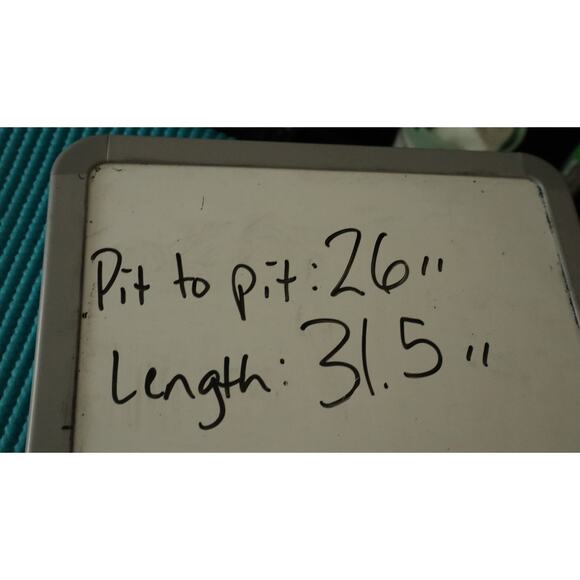 Pit to pit: 26"
Length: 31.5"